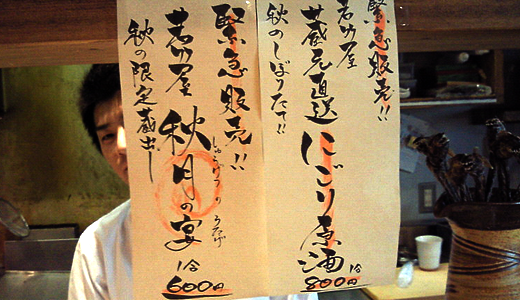 緊急販売!!
若竹屋
蔵元直送にごり原酒
秋のしぼりたて!!
1合
800円
緊急販売!!
若竹屋 秋月の宴
しゅうげつのうたげ
秋の限定蔵出し
1合
600円